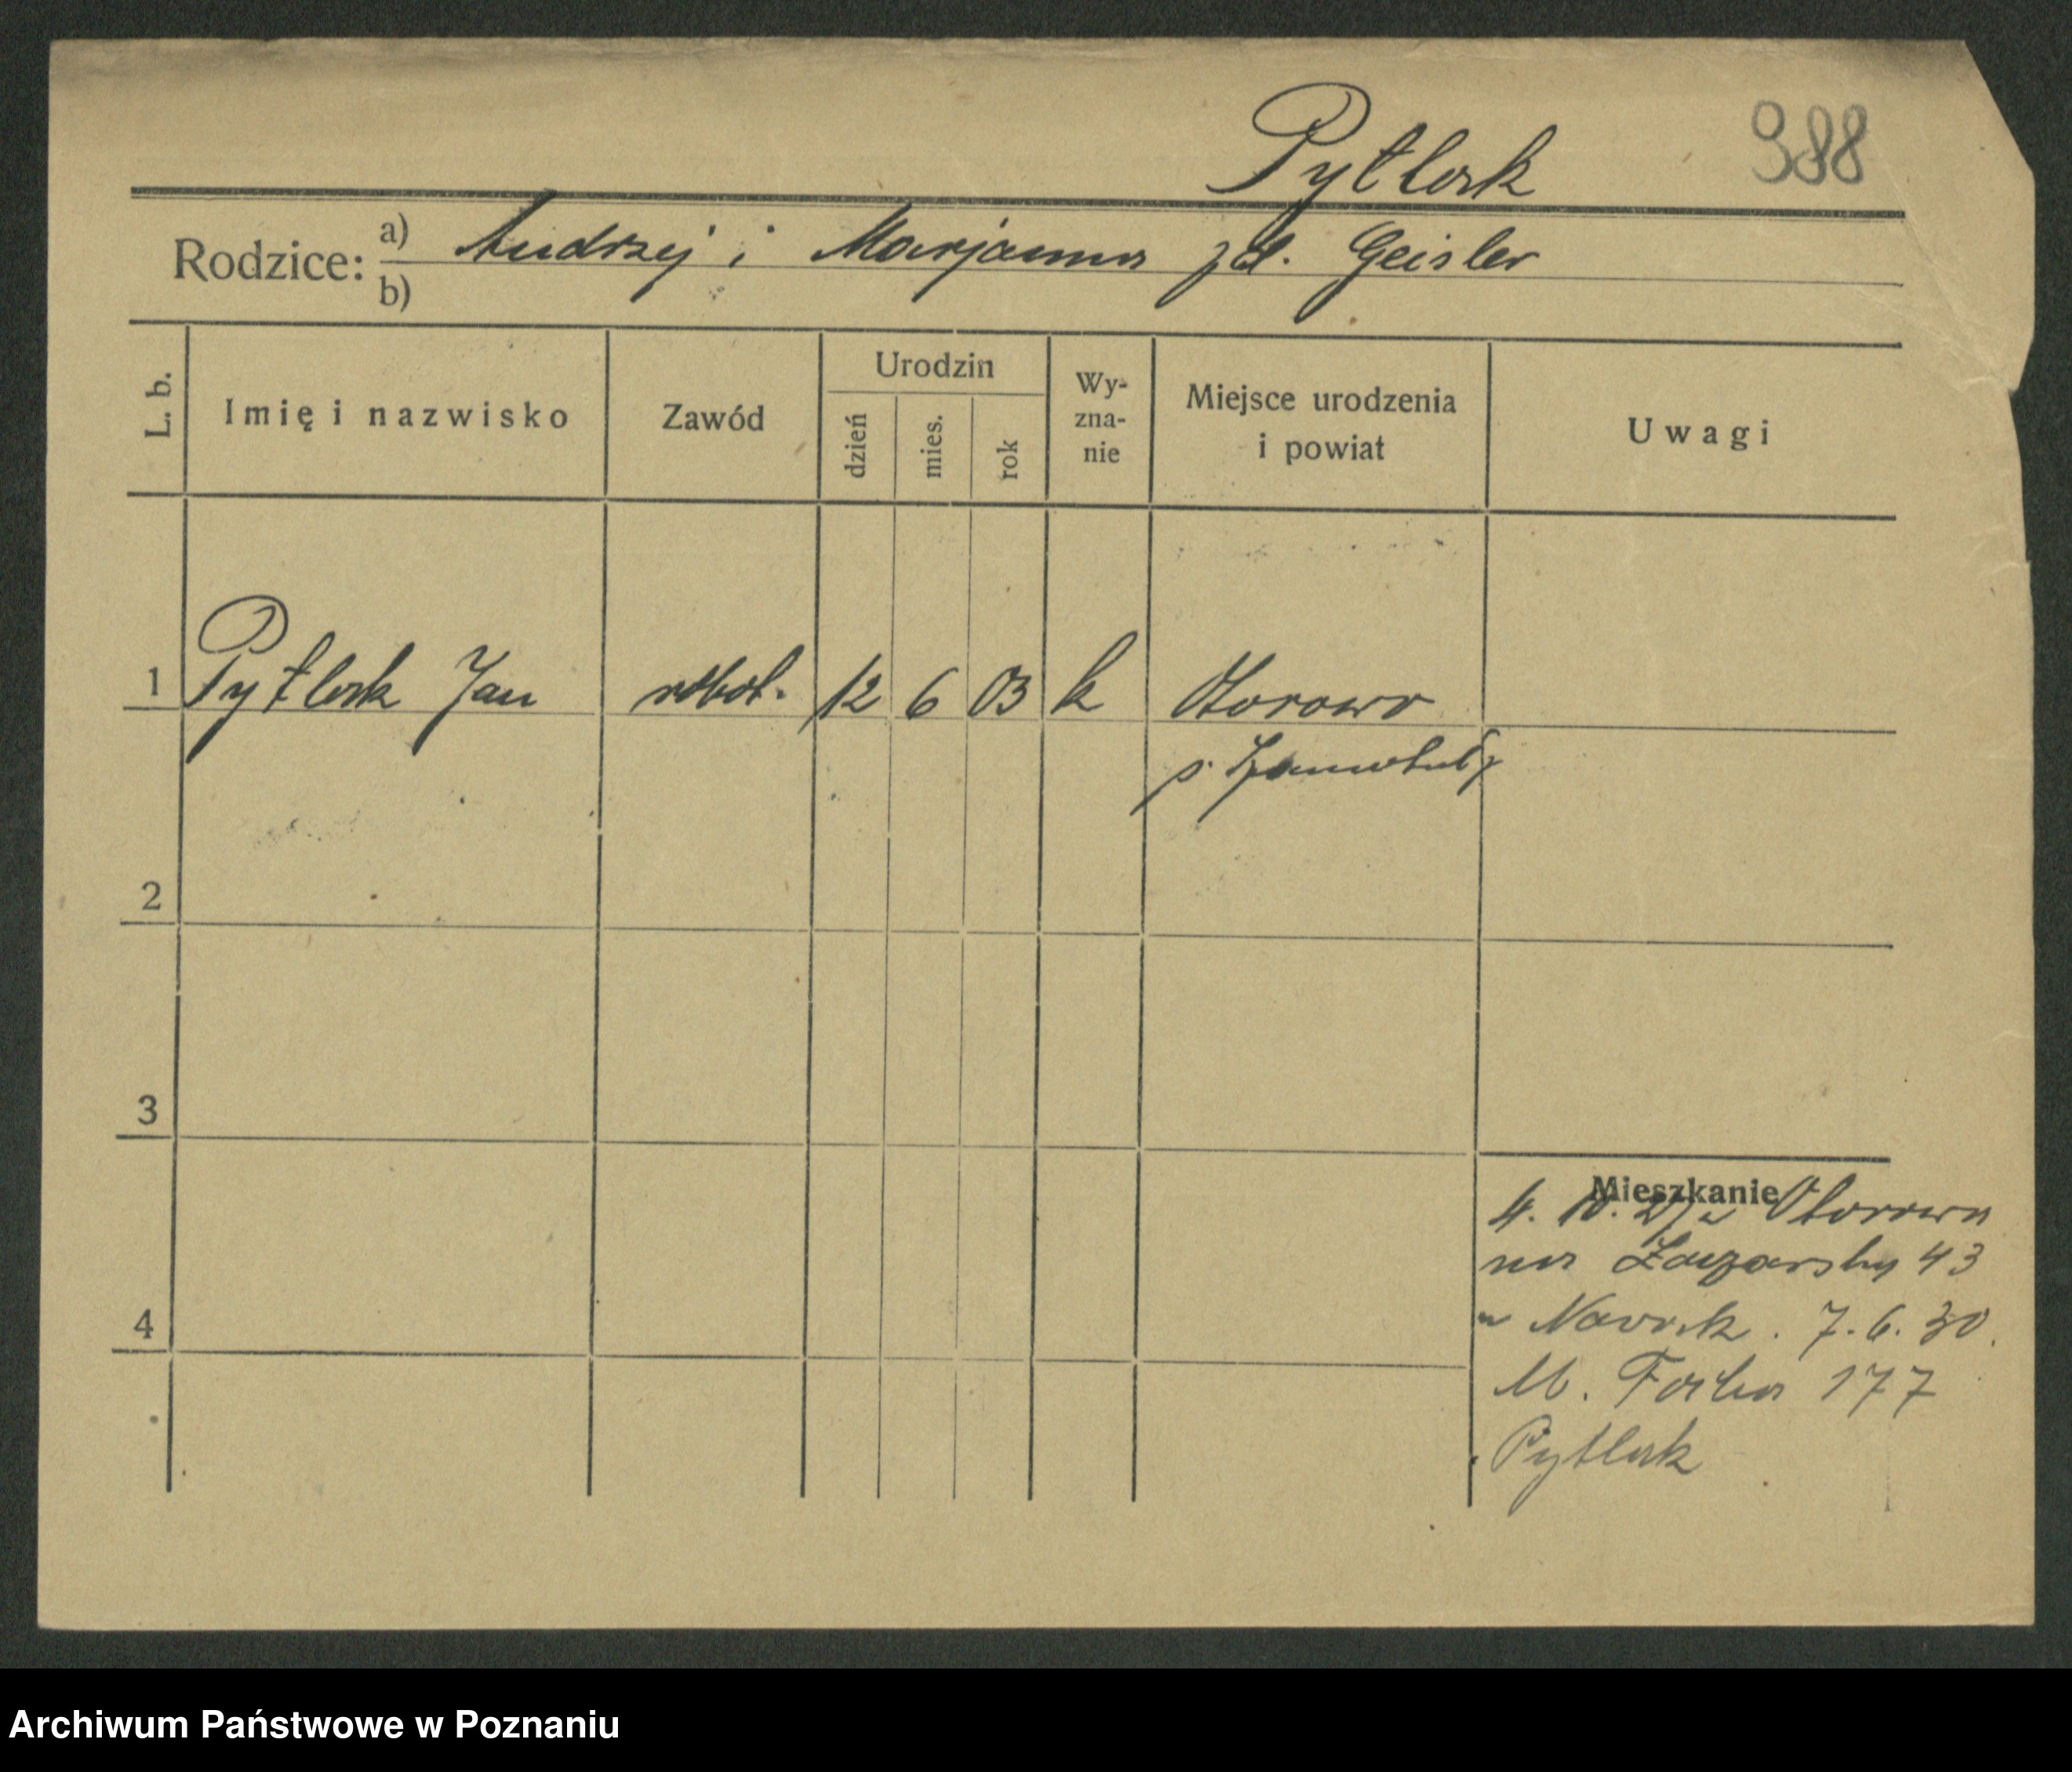 Pytlak 388
Rodzice: a) Andrzej i Marjanna zd. Geisler
b)
L. b. Imię i nazwisko Zawód Urodzin dzień mies. rok Wy-zna-nie Miejsce urodzenia i powiat Uwagi
1 Pytlak Jan robot. 12 6 03 k Otorowo
p. Szamotuły
2
3
Mieszkanie
4. 10. z Otorowa
na Łazarską 43
Nowak. 7.6.30.
4
M. Focha 177
Pytlak
Archiwum Państwowe w Poznaniu